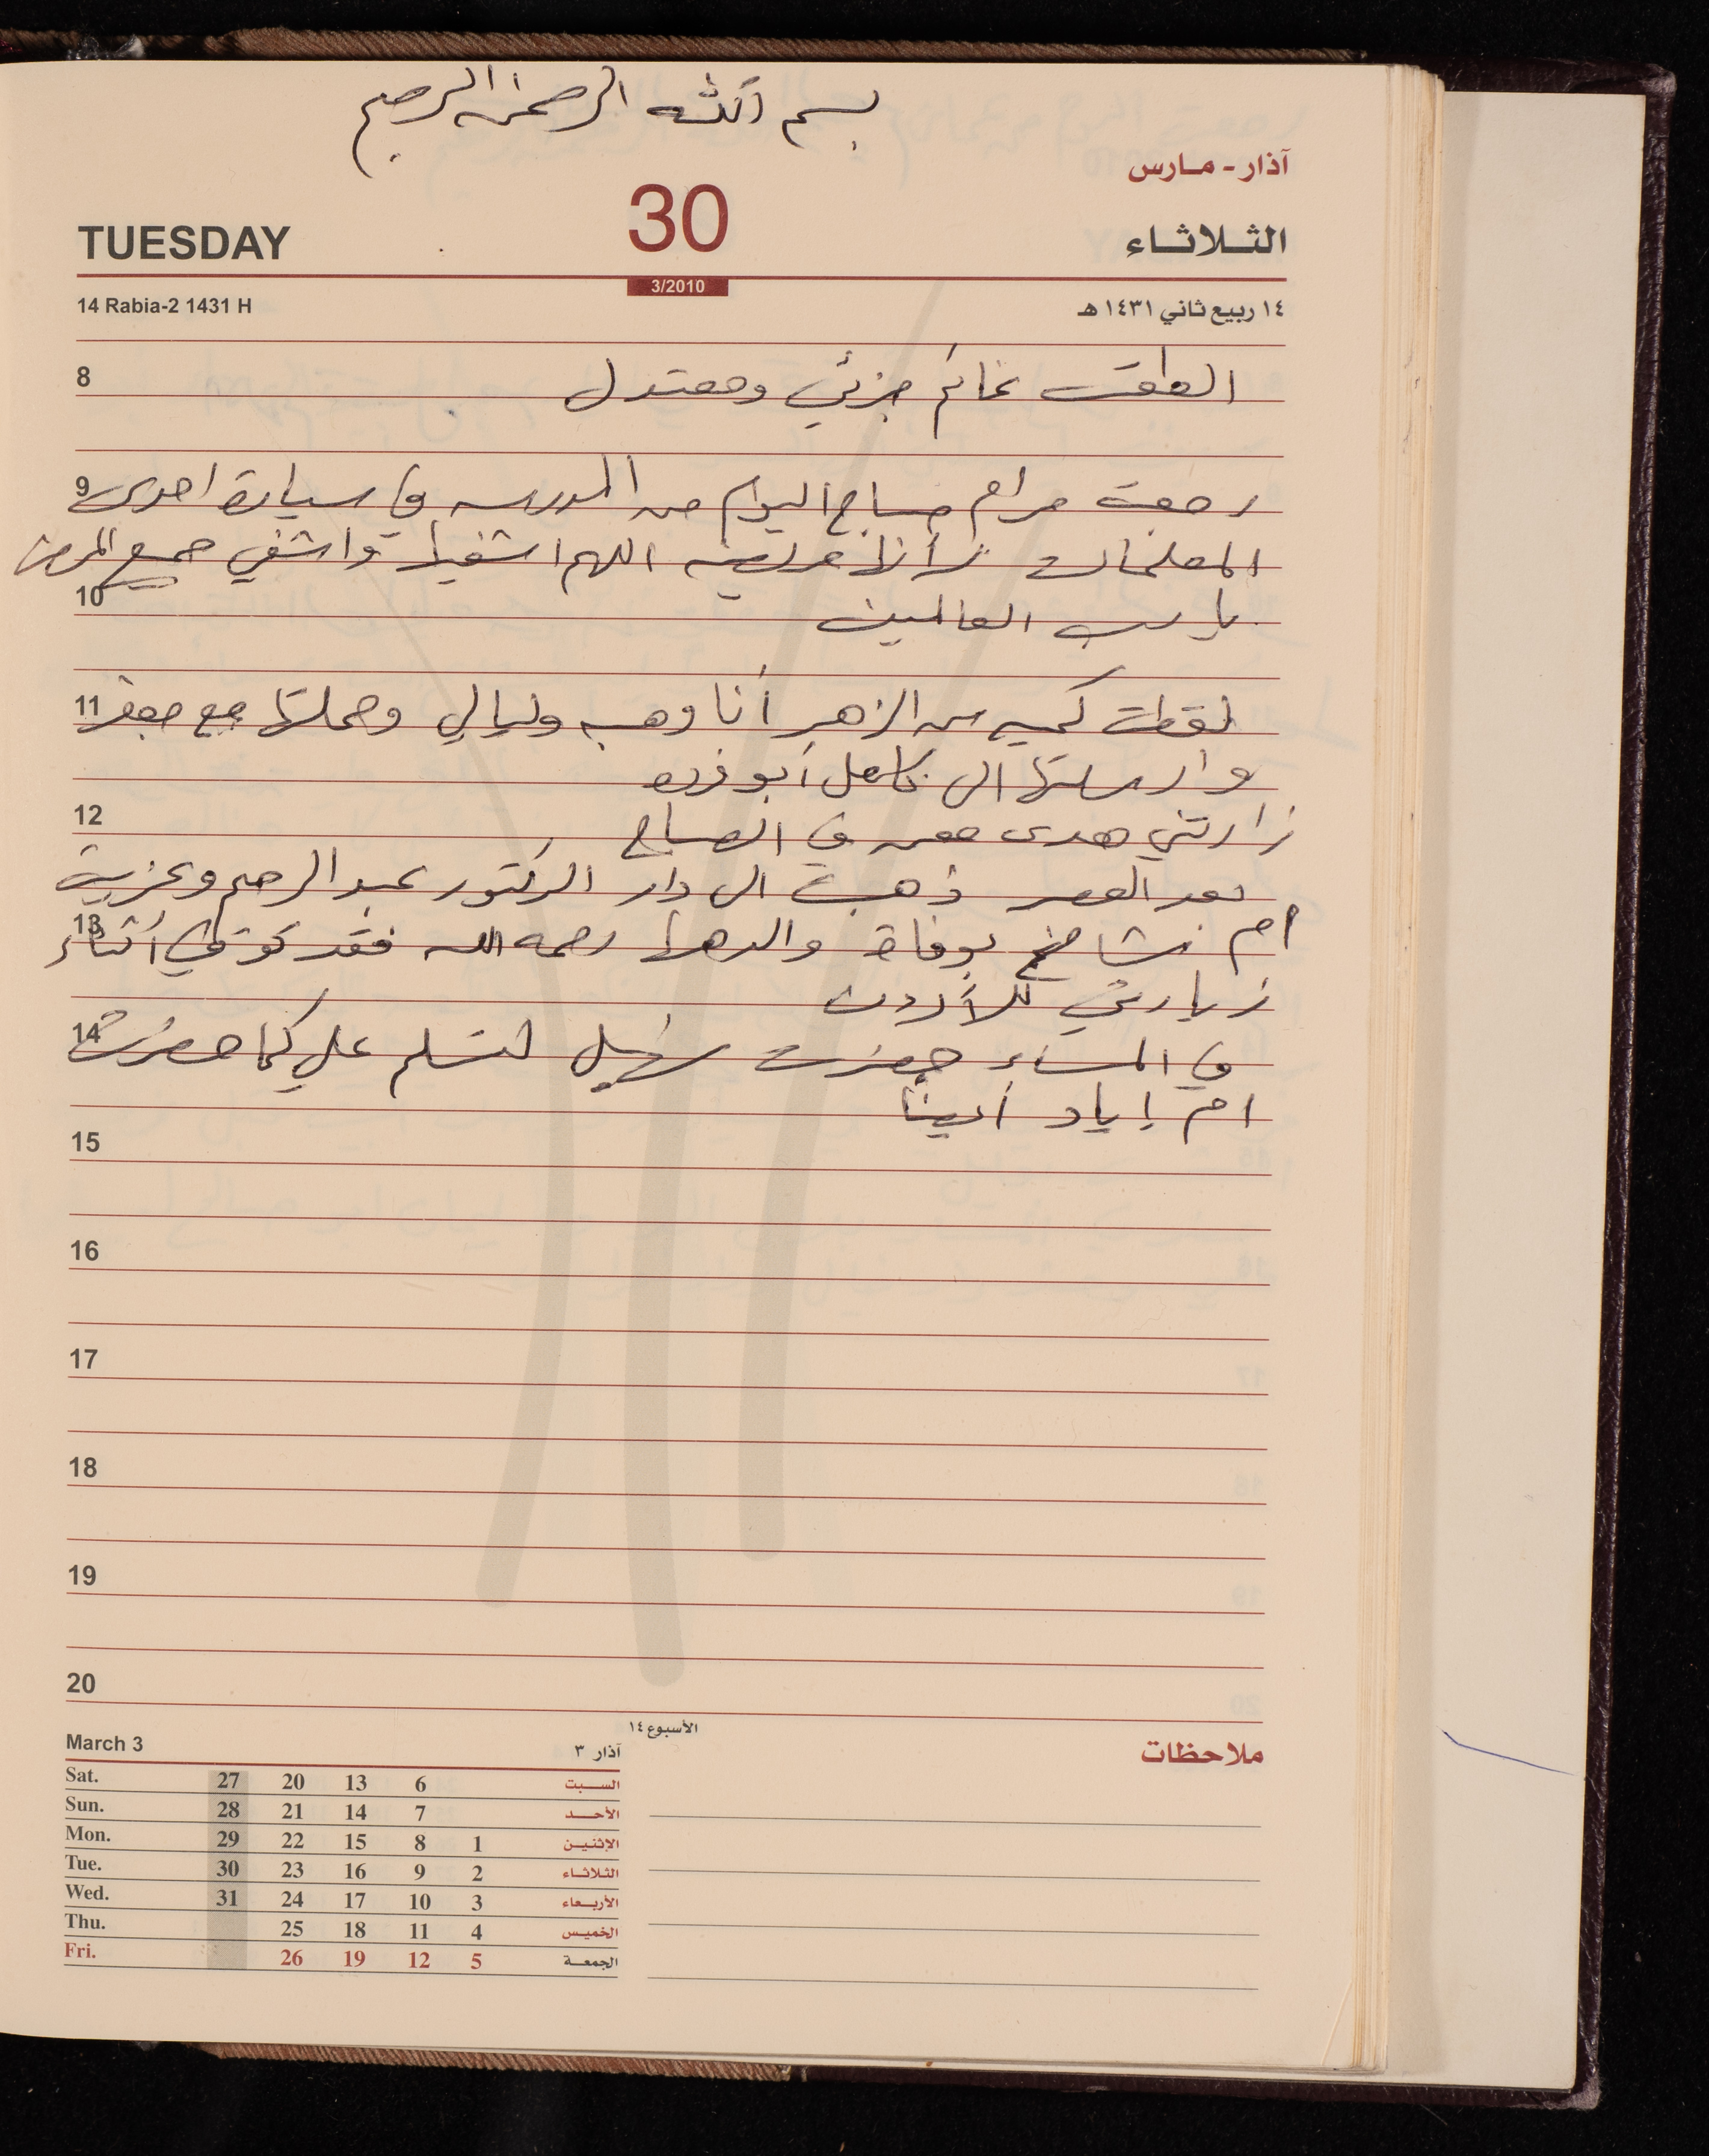 بسم الله الرحمن الرحيم
آذار - مارس
TUESDAY 30 الثلاثاء
3/2010
14 Rabia-2 1431 H ١٤ ربيع ثاني ١٤٣١ هـ
8 الطقس غائم جزئي ومعتدل
9 رجعت مرام صباح اليوم من المدرسه في سيارة احدى
المعلمات لأنها مريضه اللهم اشفيها واشفي جميع المرضى
10 يا رب العالمين
11 لقطت كميه من الزهر أنا وهبه وليالي وحملتها مع جعفر
وارسلتها الى كامل أبو فرده
12 زارتني هدى معن في الصباح
بعد العصر ذهبت الى دار الدكتور عبد الرحيم وعزيت
13 ام نشامخ بوفاة والدها رحمه الله فقد توفي أثناء
زيارتي للأردن
14 في المساء حضرت سهيل لتسلم علي كما حضرت
ام إياد أيضاً
15
16
17
18
19
20
الأسبوع ١٤
ملاحظات
March 3 آذار ٣
Sat. 27 20 13 6 السبت
Sun. 28 21 14 7 الأحد
Mon. 29 22 15 8 1 الإثنين
Tue. 30 23 16 9 2 الثلاثاء
Wed. 31 24 17 10 3 الأربعاء
Thu. 25 18 11 4 الخميس
Fri. 26 19 12 5 الجمعة